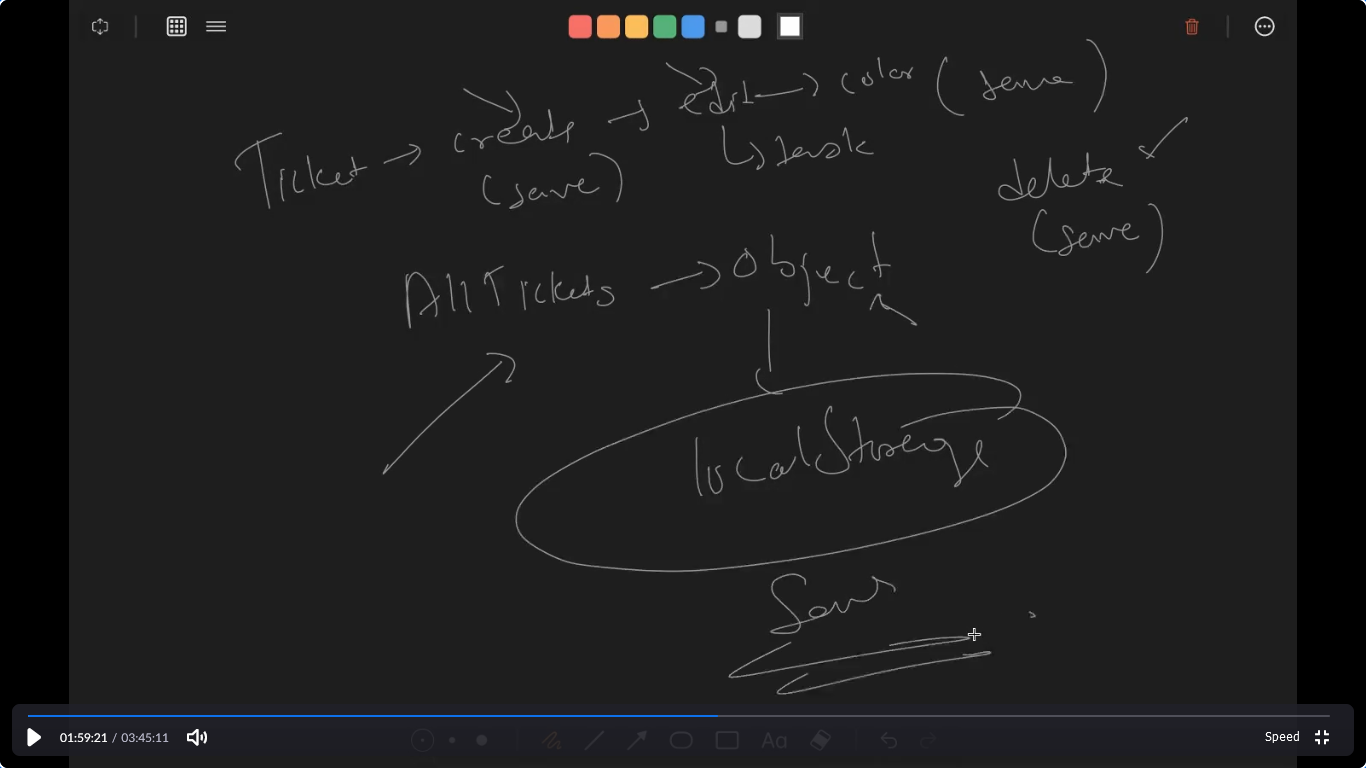 Ticket → create → edit → color (save)
(save) ↳ task
delete ✓
(save)
All Tickets → Object
localStorage
Save
Aa
01:59:21 / 03:45:11
Speed